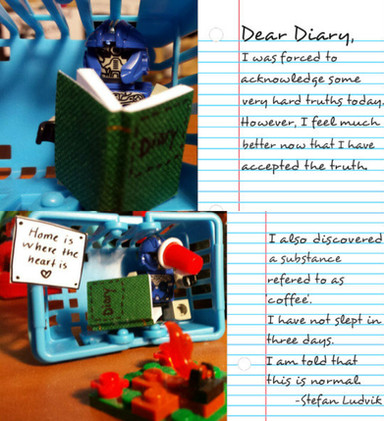 Dear Diary,
I was forced to
acknowledge some
very hard truths today.
However, I feel much
better now that I have
accepted the truth.
Diary
Home is
where the
heart is
Diary
I also discovered
a substance
refered to as
'coffee'.
I have not slept in
three days.
I am told that
this is normal.
-Stefan Ludvik